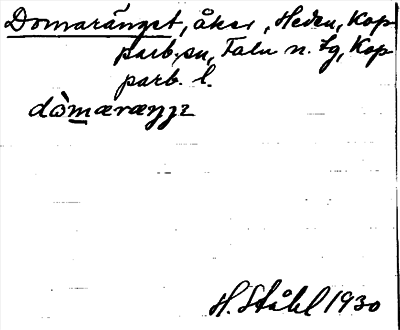 Domaränget, åker, Heden, Kop-
parb. sn, Falu n. tg, Kop-
parb. l.
dòmæræŋƞı
H. Ståhl 1930